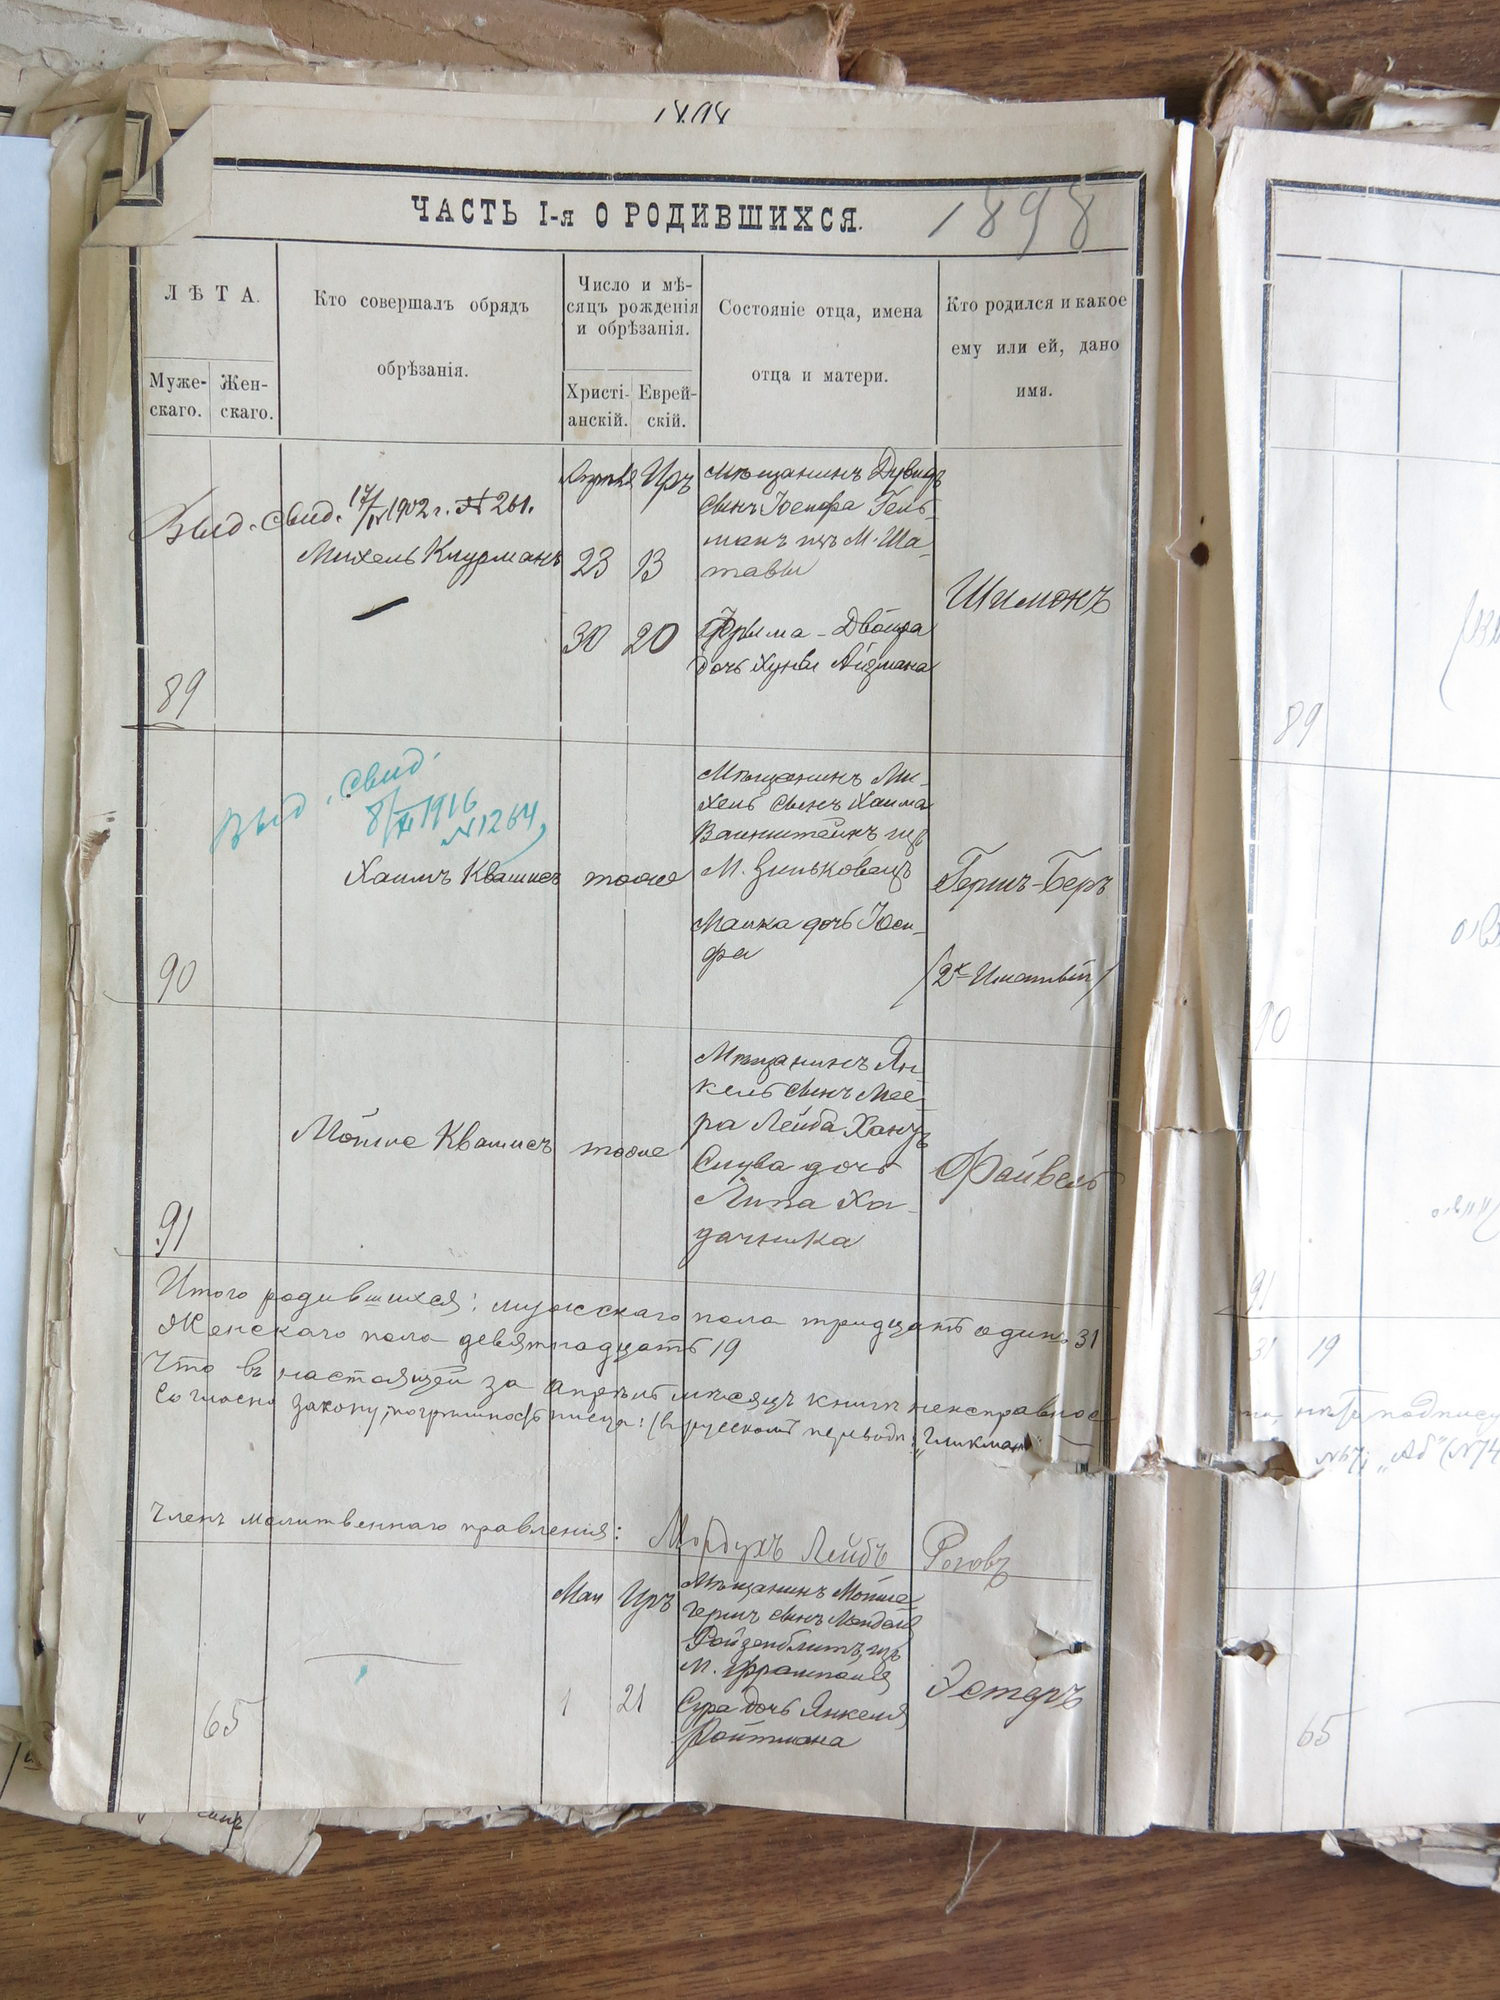 1898
ЧАСТЬ I-я О РОДИВШИХСЯ.
1898
ЛѢТА.
Муже-
скаго.
Жен-
скаго.
Кто совершалъ обрядъ
обрѣзанія.
Число и мѣ-
сяцъ рожденія
и обрѣзанія.
Христі-
анскій.
Еврей-
скій.
Состояніе отца, имена
отца и матери.
Кто родился и какое
ему или ей, дано
имя.
89
Выд. свид. 17/IV 1902 г. № 261.
Михель Клурманъ
Апрѣля Иръ
23 13
30 20
Мѣщанинъ Дувидъ
сынъ Іосифа Гель-
манъ изъ М. Ша-
тавы
Фрыма-Двойра
дочь Хуны Айзмана
Шимонъ
90
Выд. свид.
8/XI 1916
N 1264
Хаимъ Квашисъ
тоже
Мѣщанинъ Ми-
хель сынъ Хаима
Ваинштейнъ изъ
М. Зиньковецъ
Малка дочь Іоси-
фа
Гершъ-Беръ
/2х-Имянный/
91
Мойше Квашисъ
тоже
Мѣщанинъ Ян-
кель сынъ Мее-
ра Лейба
Слува дочь
Липа Ха-
дачника
Файвель
Итого родившихся: мужскаго пола тридцать одинъ 31
Женскаго пола девятнадцать 19
Что въ настоящей за Апрѣль мѣсяцъ книгѣ
согласно закону, погрѣшность писца: (въ русскомъ переводѣ: „Гликман"
Членъ молитвеннаго правленія: Мордухъ Лейбъ
65
Маи Иръ
1 21
Мѣщанинъ Мойше-
Гершъ сынъ Менделя
Ройзенблитъ, изъ
М. Фрампола
Сура дочь Янкеля
Ройтмана
Эстеръ
89
90
91
31 19
подписи
65